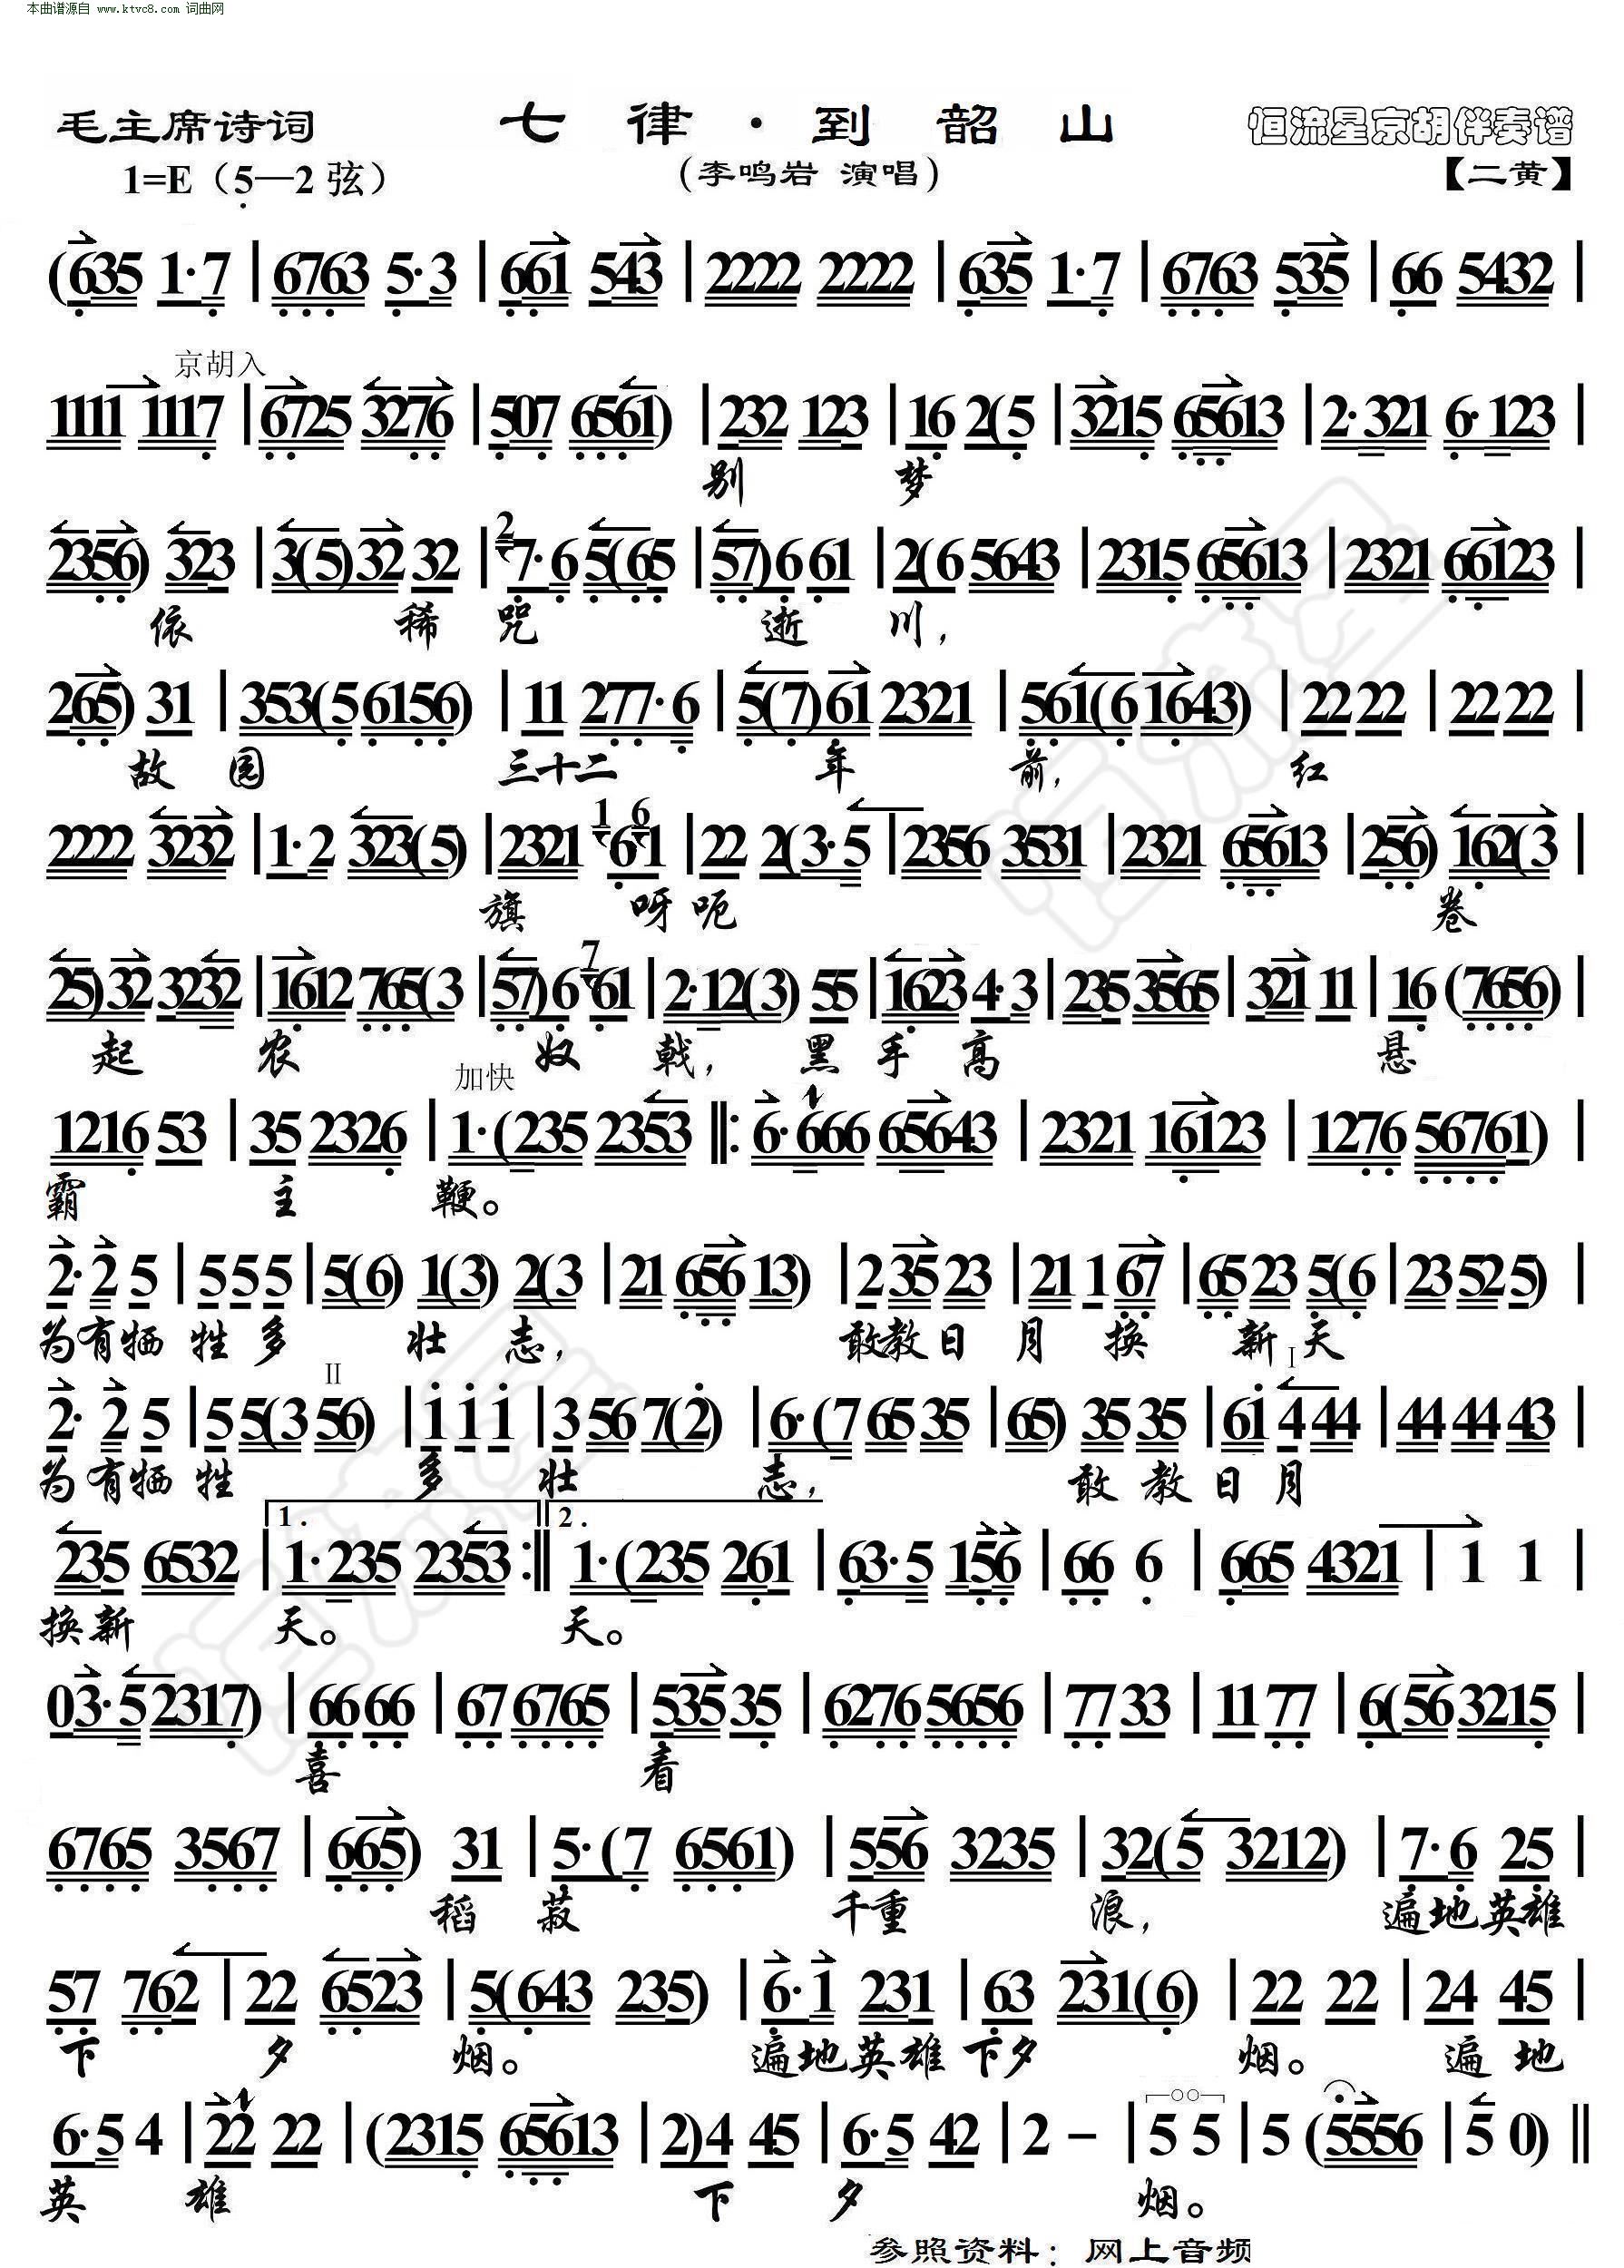 本曲谱源自 www.ktvc8.com 词曲网
毛主席诗词 七律·到韶山 恒流星京胡伴奏谱
1=E（5—2 弦） （李鸣岩 演唱） 【二黄】
(635 1·7 | 6763 5·3 | 661 543 | 2222 2222 | 635 1·7 | 6763 535 | 66 5432 |
京胡入
1111 1117 | 6725 3276 | 507 6561) | 232 123 | 16 2(5 | 3215 65613 | 2·321 6·123 |
别 梦
2356) 323 | 3(5)32 32 | 2 7·6 5(65 | 57)6 61 | 2(6 5643 | 2315 65613 | 2321 66123 |
依 稀 咒 逝 川，
265) 31 | 353(5 6156) | 11 277·6 | 5(7)61 2321 | 561(6 1643) | 22 22 | 22 22 |
故 园 三十二 年 前， 红
2222 3232 | 1·2 323(5) | 2321 1 6 61 | 22 2(3·5 | 2356 3531 | 2321 65613 | 256) 162(3 |
旗 呀 呃 卷
25)32 3232 | 1612 765(3 | 57)6 7 61 | 2·12(3) 55 | 1623 4·3 | 235 3565 | 321 11 | 16 (7656) |
起 农 奴 戟， 黑 手 高 悬
加快
1216 53 | 35 2326 | 1·(235 2353 ‖: 6·666 65643 | 2321 16123 | 1276 56761) |
霸 主 鞭。
2·2 5 | 5 5 5 | 5(6) 1(3) 2(3 | 21 656 13) | 2 35 23 | 21 1 67 | 65 23 5(6 | 23 52 5) |
为有牺 牲 多 壮 志， 敢教日 月 换 新 天
II I
2· 2 5 | 5 5(3 56) | 1 1 1 | 3 56 7(2) | 6·(7 65 35 | 65) 35 35 | 61 4 44 | 44 44 43 |
为有牺 牲 多 壮 志， 敢 教 日 月
1. 2.
235 6532 | 1·235 2353 :‖ 1·(235 261 | 63·5 156 | 66 6 | 665 4321 | 1 1 |
换新 天。 天。
03·5 2317) | 66 66 | 67 6765 | 535 35 | 6276 5656 | 77 33 | 11 77 | 6(56 3215 |
喜 看
6765 3567 | 665) 31 | 5·(7 6561) | 556 3235 | 32(5 3212) | 7·6 25 |
稻 菽 千重 浪， 遍地英雄
57 762 | 22 6523 | 5(643 235) | 6·1 231 | 63 231(6) | 22 22 | 24 45 |
下 夕 烟。 遍地英雄 下夕 烟。 遍 地
6·5 4 | 22 22 | (2315 65613 | 2)4 45 | 6·5 42 | 2 – | 5 5 | 5 (5556 | 5 0) ‖
英 雄 下 夕 烟。
参照资料：网上音频